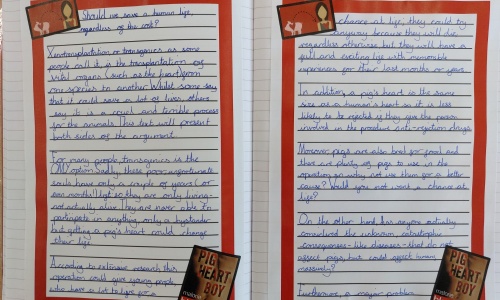 Should we save a human life,
regardless of the cost?
Xenotransplantation or transgenics as some
people call it, is the transplantation of
vital organs (such as the heart) from
one species to another. Whilst some say
that it could save a lot of lives, others
say it is a cruel and terrible process
for the animals. This text will present
both sides of the argument.
For many people, transgenics is the
ONLY option. Sadly, these poor unfortunate
souls have only a couple of years (or
even months) left so they are only living-
not actually alive. They are never able to
participate in anything, only a bystander
but getting a pig's heart could change
their life.
According to extensive research this
operation could give young people,
who have a lot to live for a
PIG
HEART
BOY
chance at life, they could try
anyway because they will die
regardless otherwise but they will have a
full and exciting life with memorable
experiences for their last months or years.
In addition, a pig's heart is the same
size as a human's heart so it is less
likely to be rejected if they give the person
involved in the procedure anti-rejection drugs.
Moreover, pigs are also bred for food and
there are plenty of pigs to use in the
operation so why not use them for a better
cause? Would you not want a chance at
life?
On the other hand, has anyone actually
considered the unknown catastrophic
consequences- like diseases- that do not
affect pigs but could affect human
massively?
Furthermore, a major problem
PIG
HEART
BOY